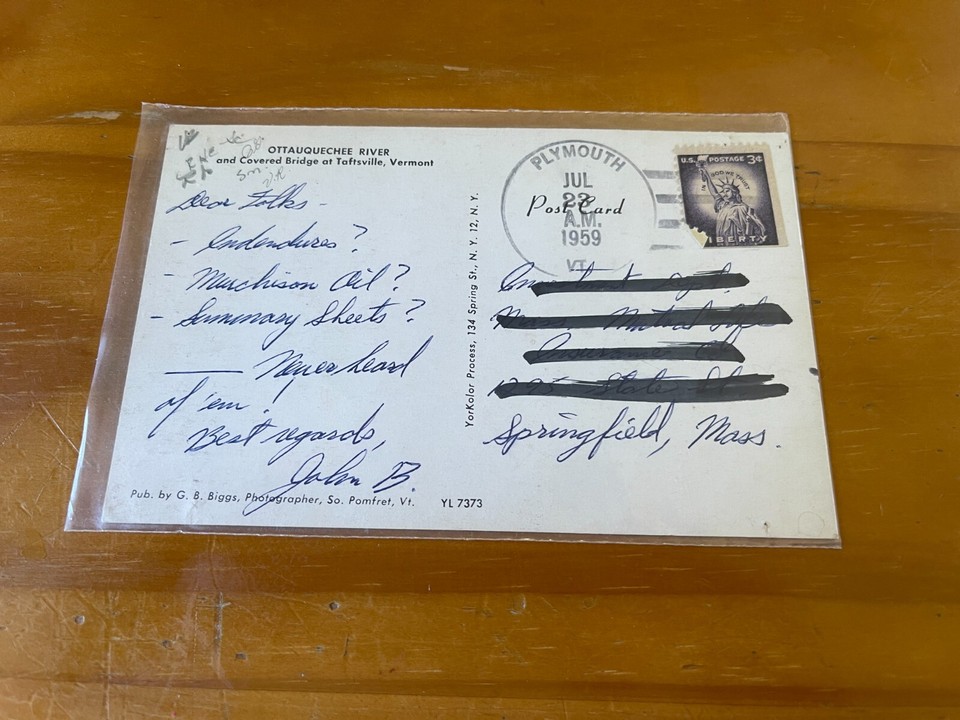 OTTAUQUECHEE RIVER
and Covered Bridge at Taftsville, Vermont
Dear Folks -
- Indendures?
- Murchison Oil?
- Summary Sheets?
Never heard
of 'em!
Best regards,
John B.
Pub. by G. B. Biggs, Photographer, So. Pomfret, Vt. YL 7373
YorKolor Process, 134 Spring St., N. Y. 12, N. Y.
PLYMOUTH
JUL
A.M.
1959
VT.
Post Card
U.S. POSTAGE 3¢
IN GOD WE TRUST
LIBERTY
Springfield, Mass.